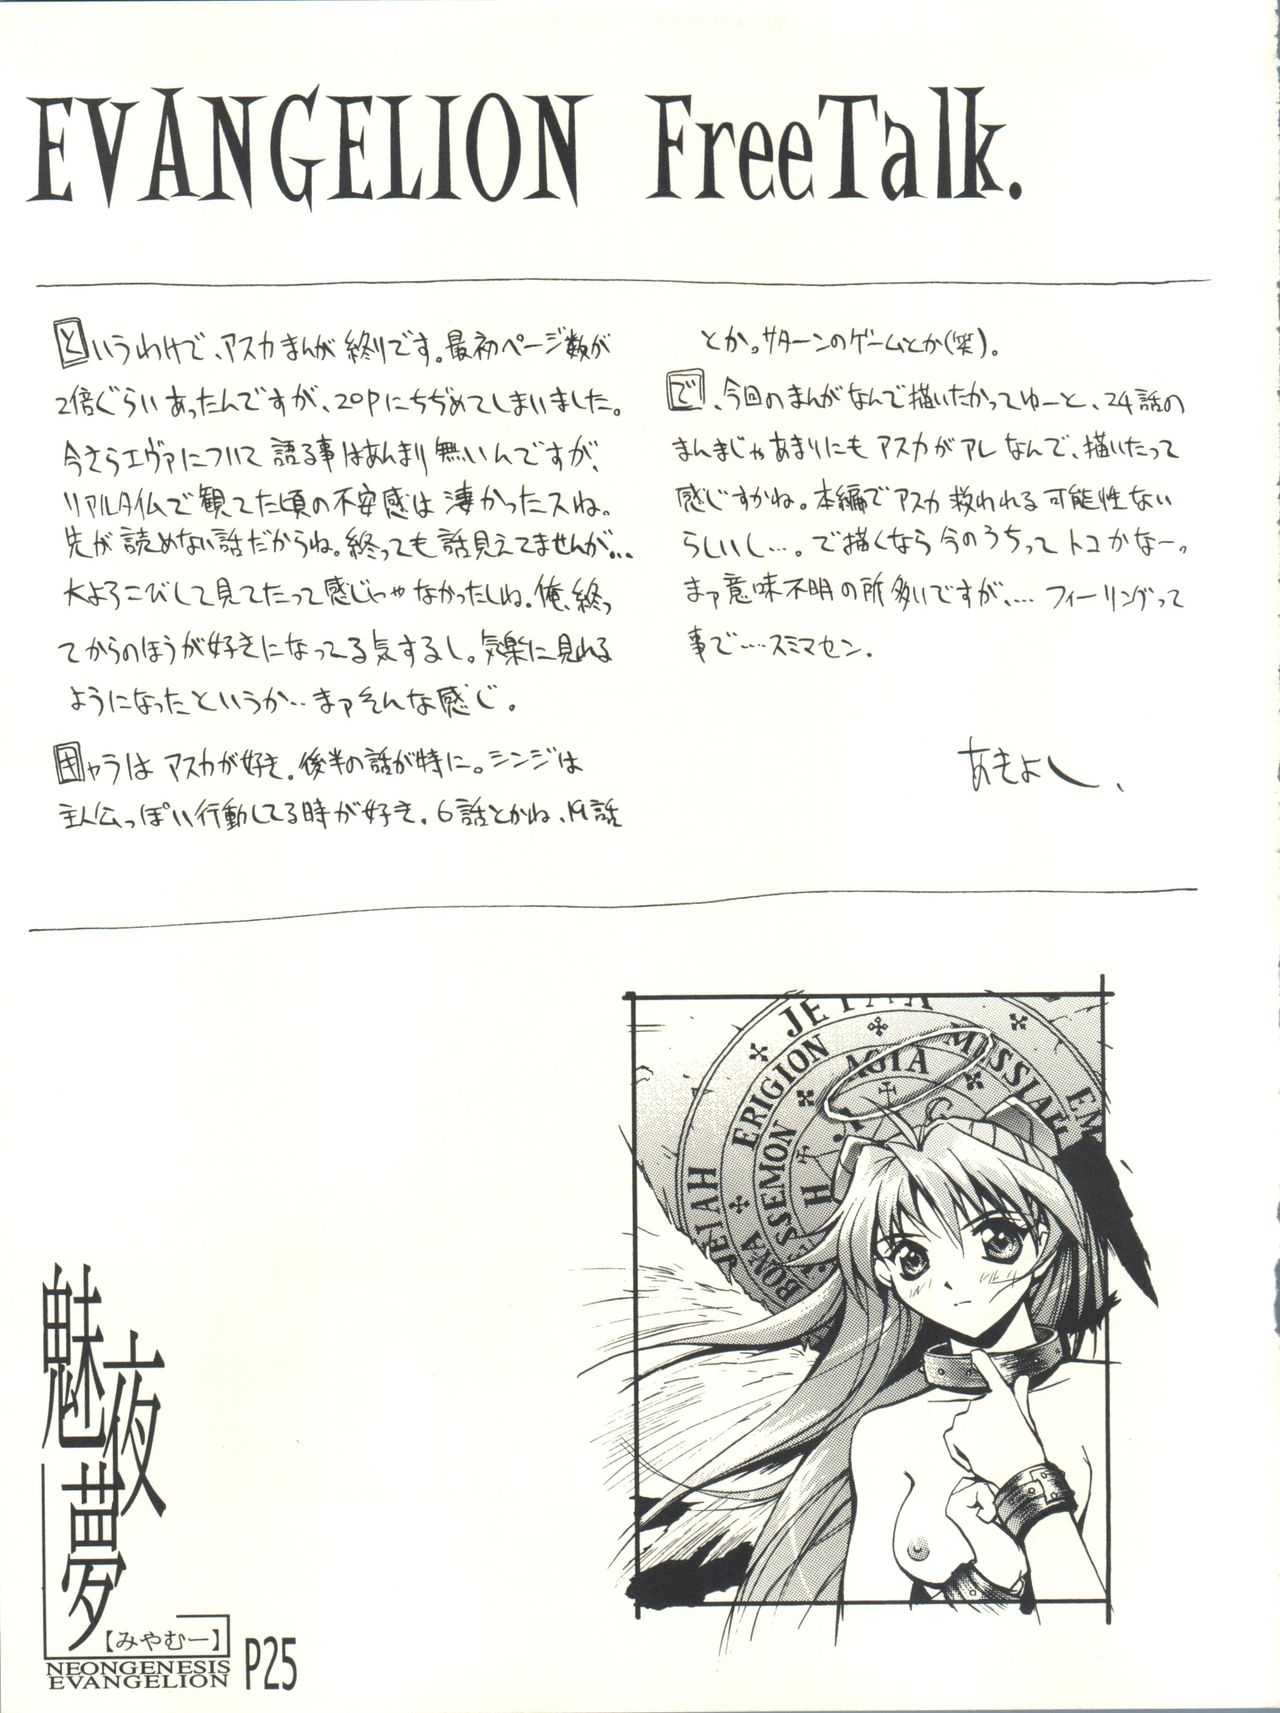 EVANGELION FreeTalk.
というわけで、アスカまんが終りです。最初ページ数が
2倍ぐらいあったんですが、20Pにちぢめてしまいました。
今さらエヴァについて語る事はあんまり無いんですが、
リアルタイムで観てた頃の不安感は凄かったスね。
先が読めない話だからね。終っても話見えてませんが…
大よろこびして見てたって感じじゃなかったしね。俺、終っ
てからのほうが好きになってる気するし。気楽に見れる
ようになったというか…まァそんな感じ。
キャラはアスカが好き。後半の話が特に。シンジは
主人公っぽい行動してる時が好き。6話とかね、19話
とか。サターンのゲームとか(笑)。
で、今回のまんがなんで描いたかってゆーと、24話の
まんまじゃあまりにもアスカがアレなんで、描いたって
感じすかね。本編でアスカ救われる可能性ない
らしいし…。で描くなら今のうちってトコかなー。
まァ意味不明の所多いですが、…フィーリングって
事で……スミマセン.
あきよし、
JEIAH
ERIGION
AGIA
MESSIAE
EM
JEIAH
BONA
ESSEMON
H
魅夜夢
【みやむー】
NEONGENESIS
EVANGELION
P25